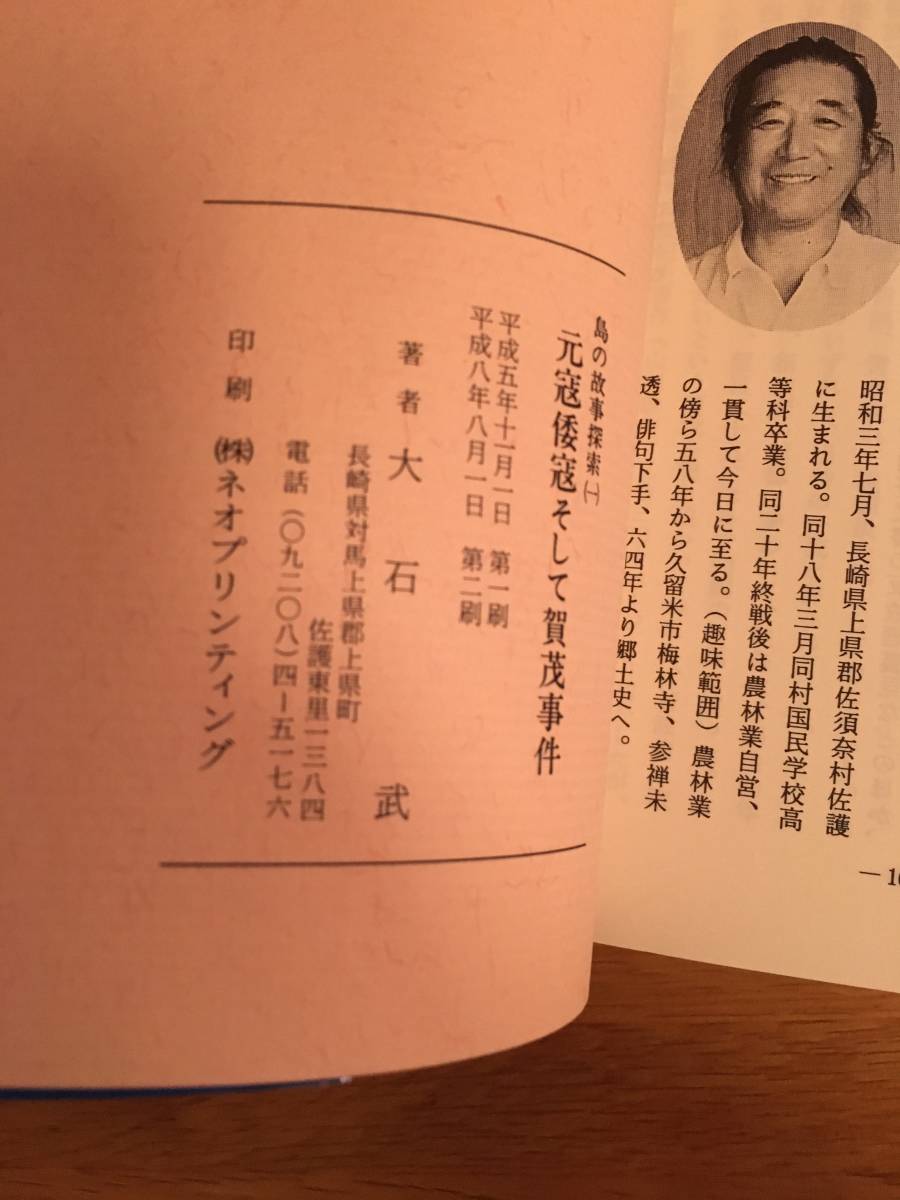 昭和三年七月、長崎県上県郡佐須奈村佐護
に生まれる。同十八年三月同村国民学校高
等科卒業。同二十年終戦後は農林業自営、
一貫して今日に至る。(趣味範囲)農林業
の傍ら五八年から久留米市梅林寺、参禅未
透、俳句下手、六四年より郷土史へ。
島の故事探索㈠
元寇倭寇そして賀茂事件
平成五年十一月一日 第一刷
平成八年八月一日 第二刷
著者 大石 武
長崎県対馬上県郡上県町
佐護東里一三八四
電話(〇九二〇八)四ー五一七六
印刷 ㈱ネオプリンティング